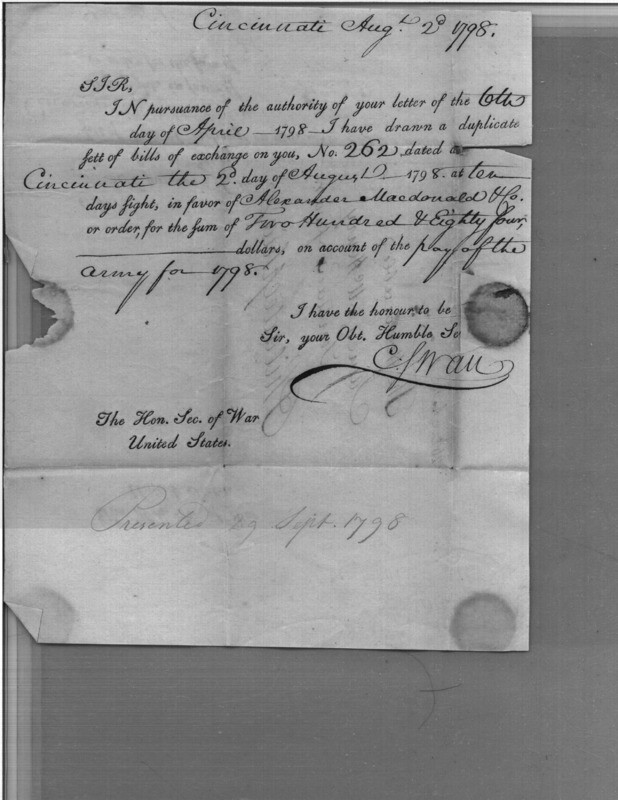 Cincinnati Augt. 2d 1798.
SIR,
IN pursuance of the authority of your letter of the 6th
day of April 1798 I have drawn a duplicate
sett of bills of exchange on you, No. 262 dated a
Cincinnati the 2d. day of August 1798. at ten
days sight, in favor of Alexander Macdonald & Co.
or order, for the sum of Two Hundred & Eighty four,
dollars, on account of the pay of the
army for 1798.
I have the honour, to be
Sir, your Obt. Humble Se
C. Swan
The Hon. Sec. of War
United States.
Presented 29 Sept. 1798